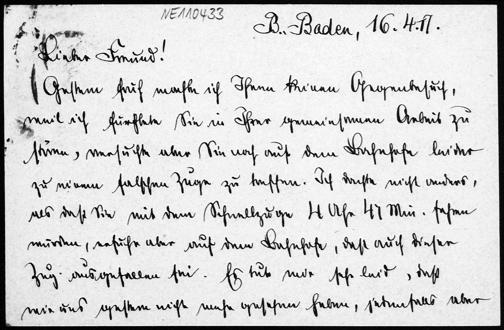 NE110433
B. Baden, 16.4.17.
Lieber Freund!
Gestern früh machte ich Ihnen keinen Gegenbesuch,
weil ich fürchtete Sie in Ihrer gemeinsamen Arbeit zu
stören, versuchte aber Sie noch auf dem Bahnhofe leider
zu einem falschen Zuge zu treffen. Ich dachte nicht anders,
als daß Sie mit dem Schnellzuge 4 Uhr 47 Min. fahren
würden, erfuhr aber auf dem Bahnhofe, daß auch dieser
Zug ausgefallen sei. Es tut mir sehr leid, daß
wir uns gestern nicht mehr gesehen haben, jedenfalls aber